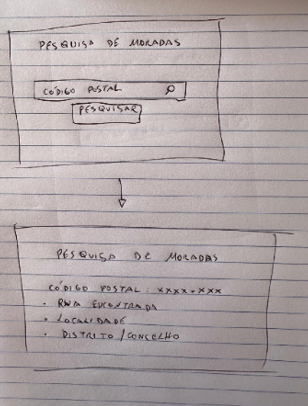 PESQUISA DE MORADAS
CÓDIGO POSTAL
PESQUISAR
PESQUISA DE MORADAS
CÓDIGO POSTAL: XXXX-XXX
• RUA ENCONTRADA
• LOCALIDADE
• DISTRITO/CONCELHO